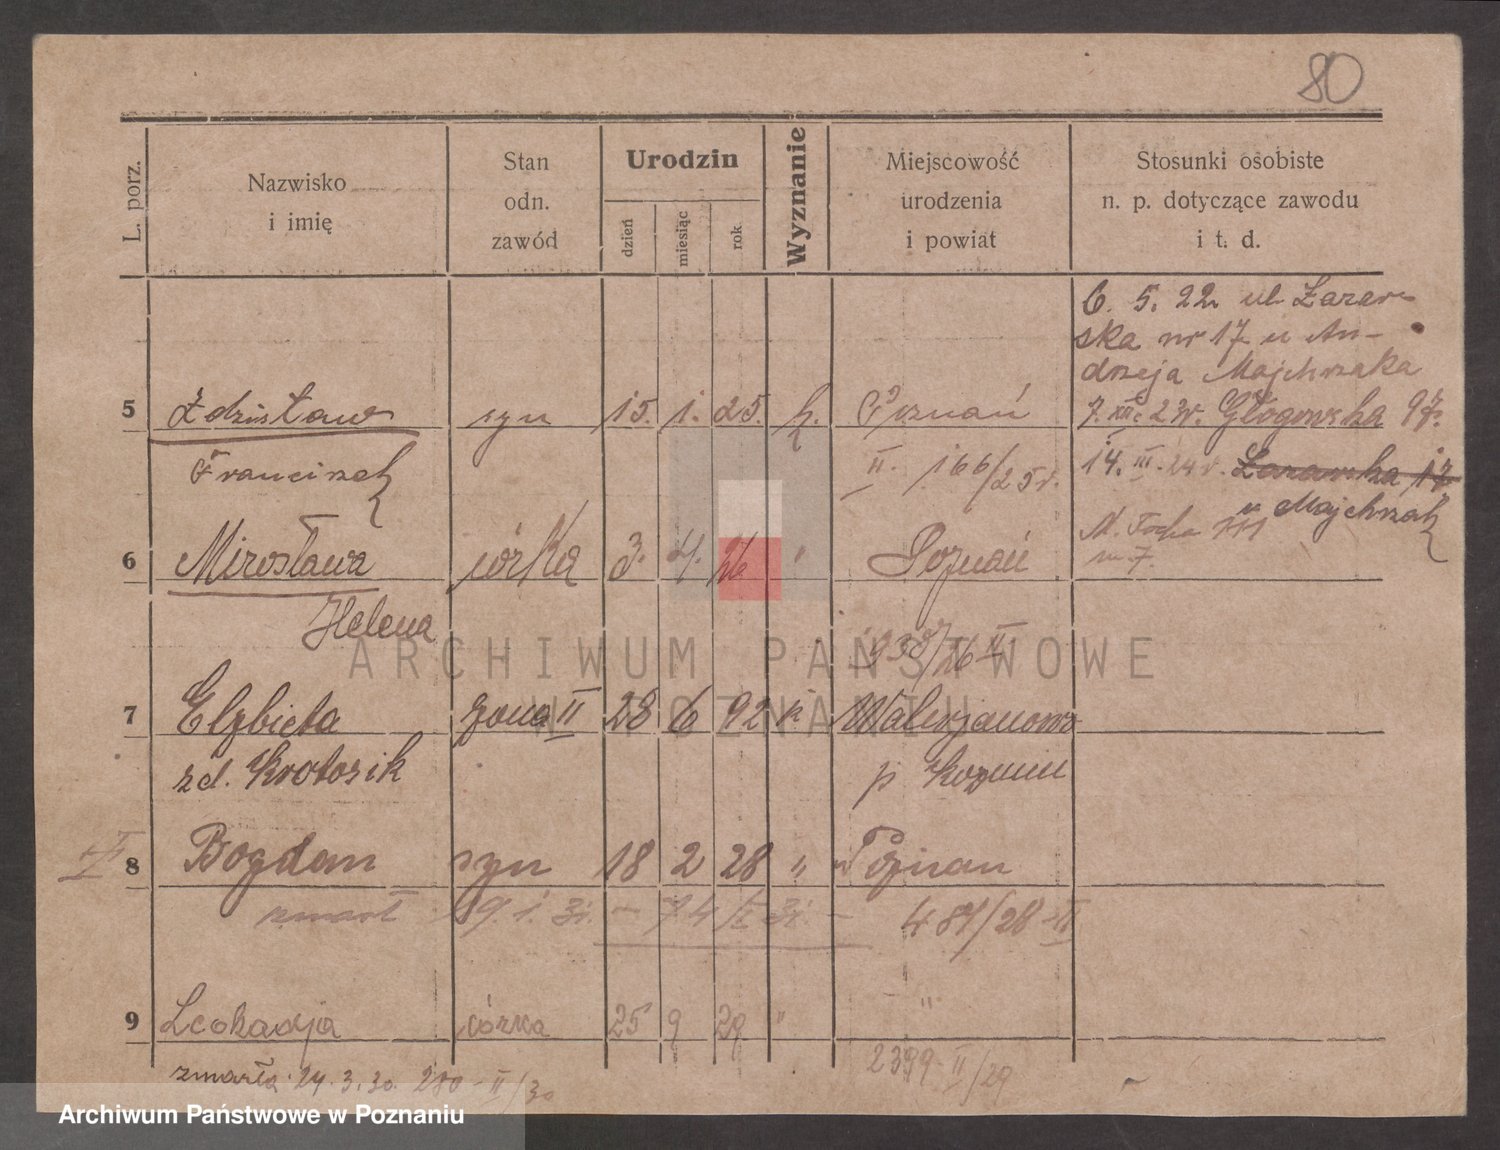 80
L. porz.
Nazwisko
i imię
Stan
odn.
zawód
Urodzin
dzień
miesiąc
rok
Wyznanie
Miejscowość
urodzenia
i powiat
Stosunki osobiste
n. p. dotyczące zawodu
i t. d.
6. 5. 22 ul. Łazar-
ska nr 17 u An-
drzeja Majchrzaka
5 Zdzisław syn 15. 1. 25. k. Poznań
7. XII. 23r. Głogowska 97.
Franciszek II. 166/25r.
14. III. 24r. Łazarska 17
u Majchrzak
M. Focha 171
m 7.
6 Mirosława córka 3. 4. 26 " Poznań
Helena 938/26 II
7 Elżbieta żona II 28 6 92 k Walerjanowo
zd. Krotosik p Kozmin
8 Bogdan syn 18 2 28 " Poznan
zmarł 19. 1. 31. - 74/II 31. - 487/28-II
9 Leokadja córka 25 9 29 " "
2399-II/29
zmarła 24. 3. 30. 280-II/30
ARCHIWUM PAŃSTWOWE
W POZNANIU
Archiwum Państwowe w Poznaniu